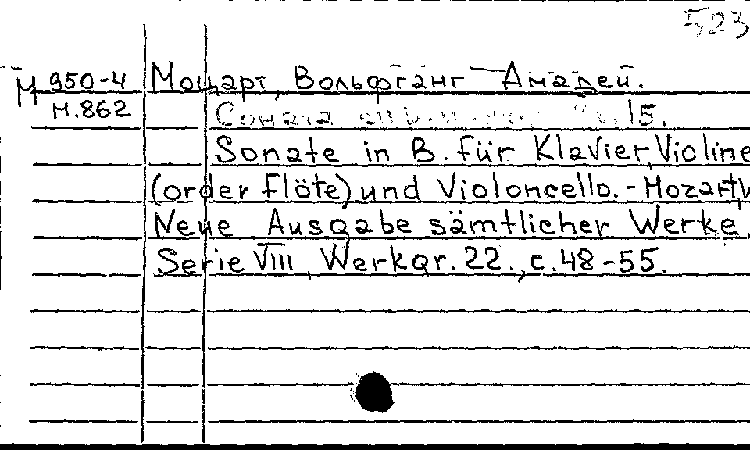 523
М 950-4 Моцарт, Вольфганг Амадей.
М.862 Соната 15.
Sonate in B. für Klavier, Violine
(order Flöte) und Violoncello. - Mozart, W
Neue Ausgabe sämtlicher Werke.
Serie VIII, Werkgr. 22., с. 48-55.